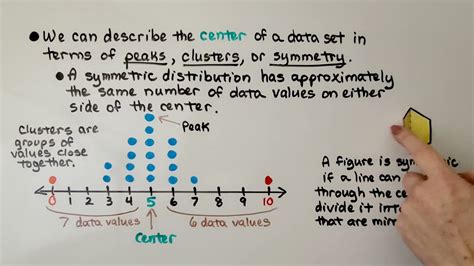 We can describe the center of a data set in
terms of peaks, clusters, or symmetry.
A symmetric distribution has approximately
the same number of data values on either
side of the center.
Clusters are
groups of
values close
together.
Peak
0 1 2 3 4 5 6 7 8 9 10
7 data values
6 data values
center
A figure is
if a line can
through the
divide it
that are